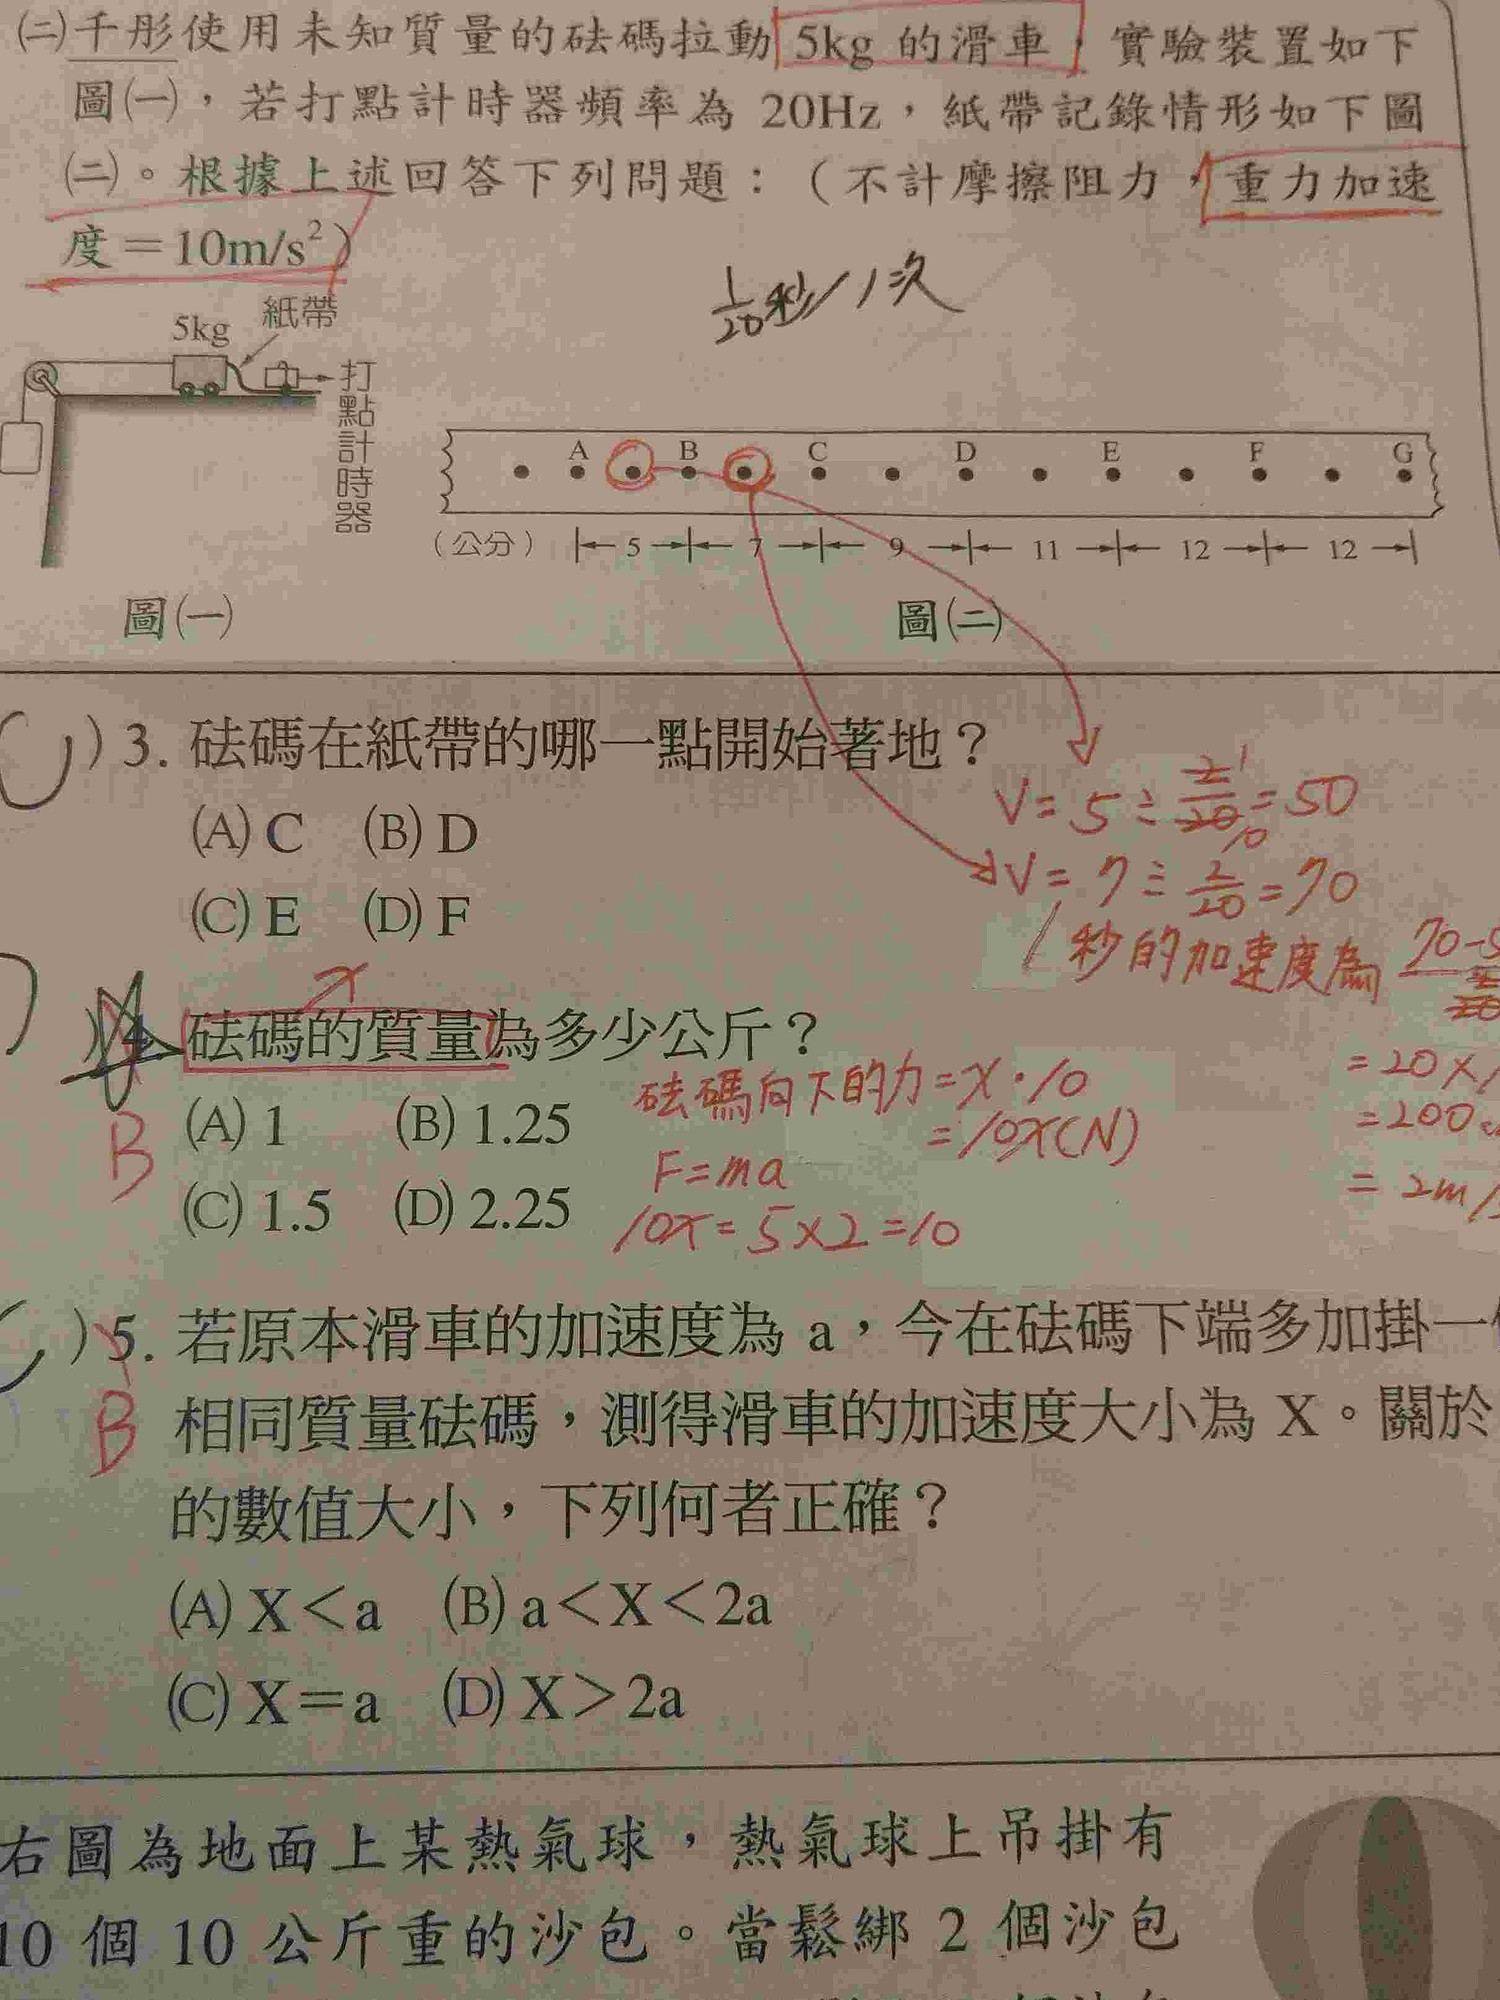 ㈡千彤使用未知質量的砝碼拉動 5kg 的滑車，實驗裝置如下
圖㈠，若打點計時器頻率為 20Hz，紙帶記錄情形如下圖
㈡。根據上述回答下列問題：（不計摩擦阻力，重力加速
度＝10m/s²）
1/20秒/1次
5kg
紙帶
打點計時器
A B C D E F G
（公分） 5 7 9 11 12 12
圖㈠
圖㈡
) 3. 砝碼在紙帶的哪一點開始著地？
(A) C (B) D
(C) E (D) F
V = 5 ÷ 2/20 = 50
V = 7 ÷ 2/20 = 70
1秒的加速度為 70-5
= 20 x
= 200
= 2m/
x
砝碼的質量為多少公斤？
B
(A) 1 (B) 1.25
(C) 1.5 (D) 2.25
砝碼向下的力 = x · 10
= 10x (N)
F = ma
10x = 5 x 2 = 10
) 5. 若原本滑車的加速度為 a，今在砝碼下端多加掛一
B
相同質量砝碼，測得滑車的加速度大小為 X。關於
的數值大小，下列何者正確？
(A) X＜a (B) a＜X＜2a
(C) X＝a (D) X＞2a
右圖為地面上某熱氣球，熱氣球上吊掛有
10 個 10 公斤重的沙包。當鬆綁 2 個沙包